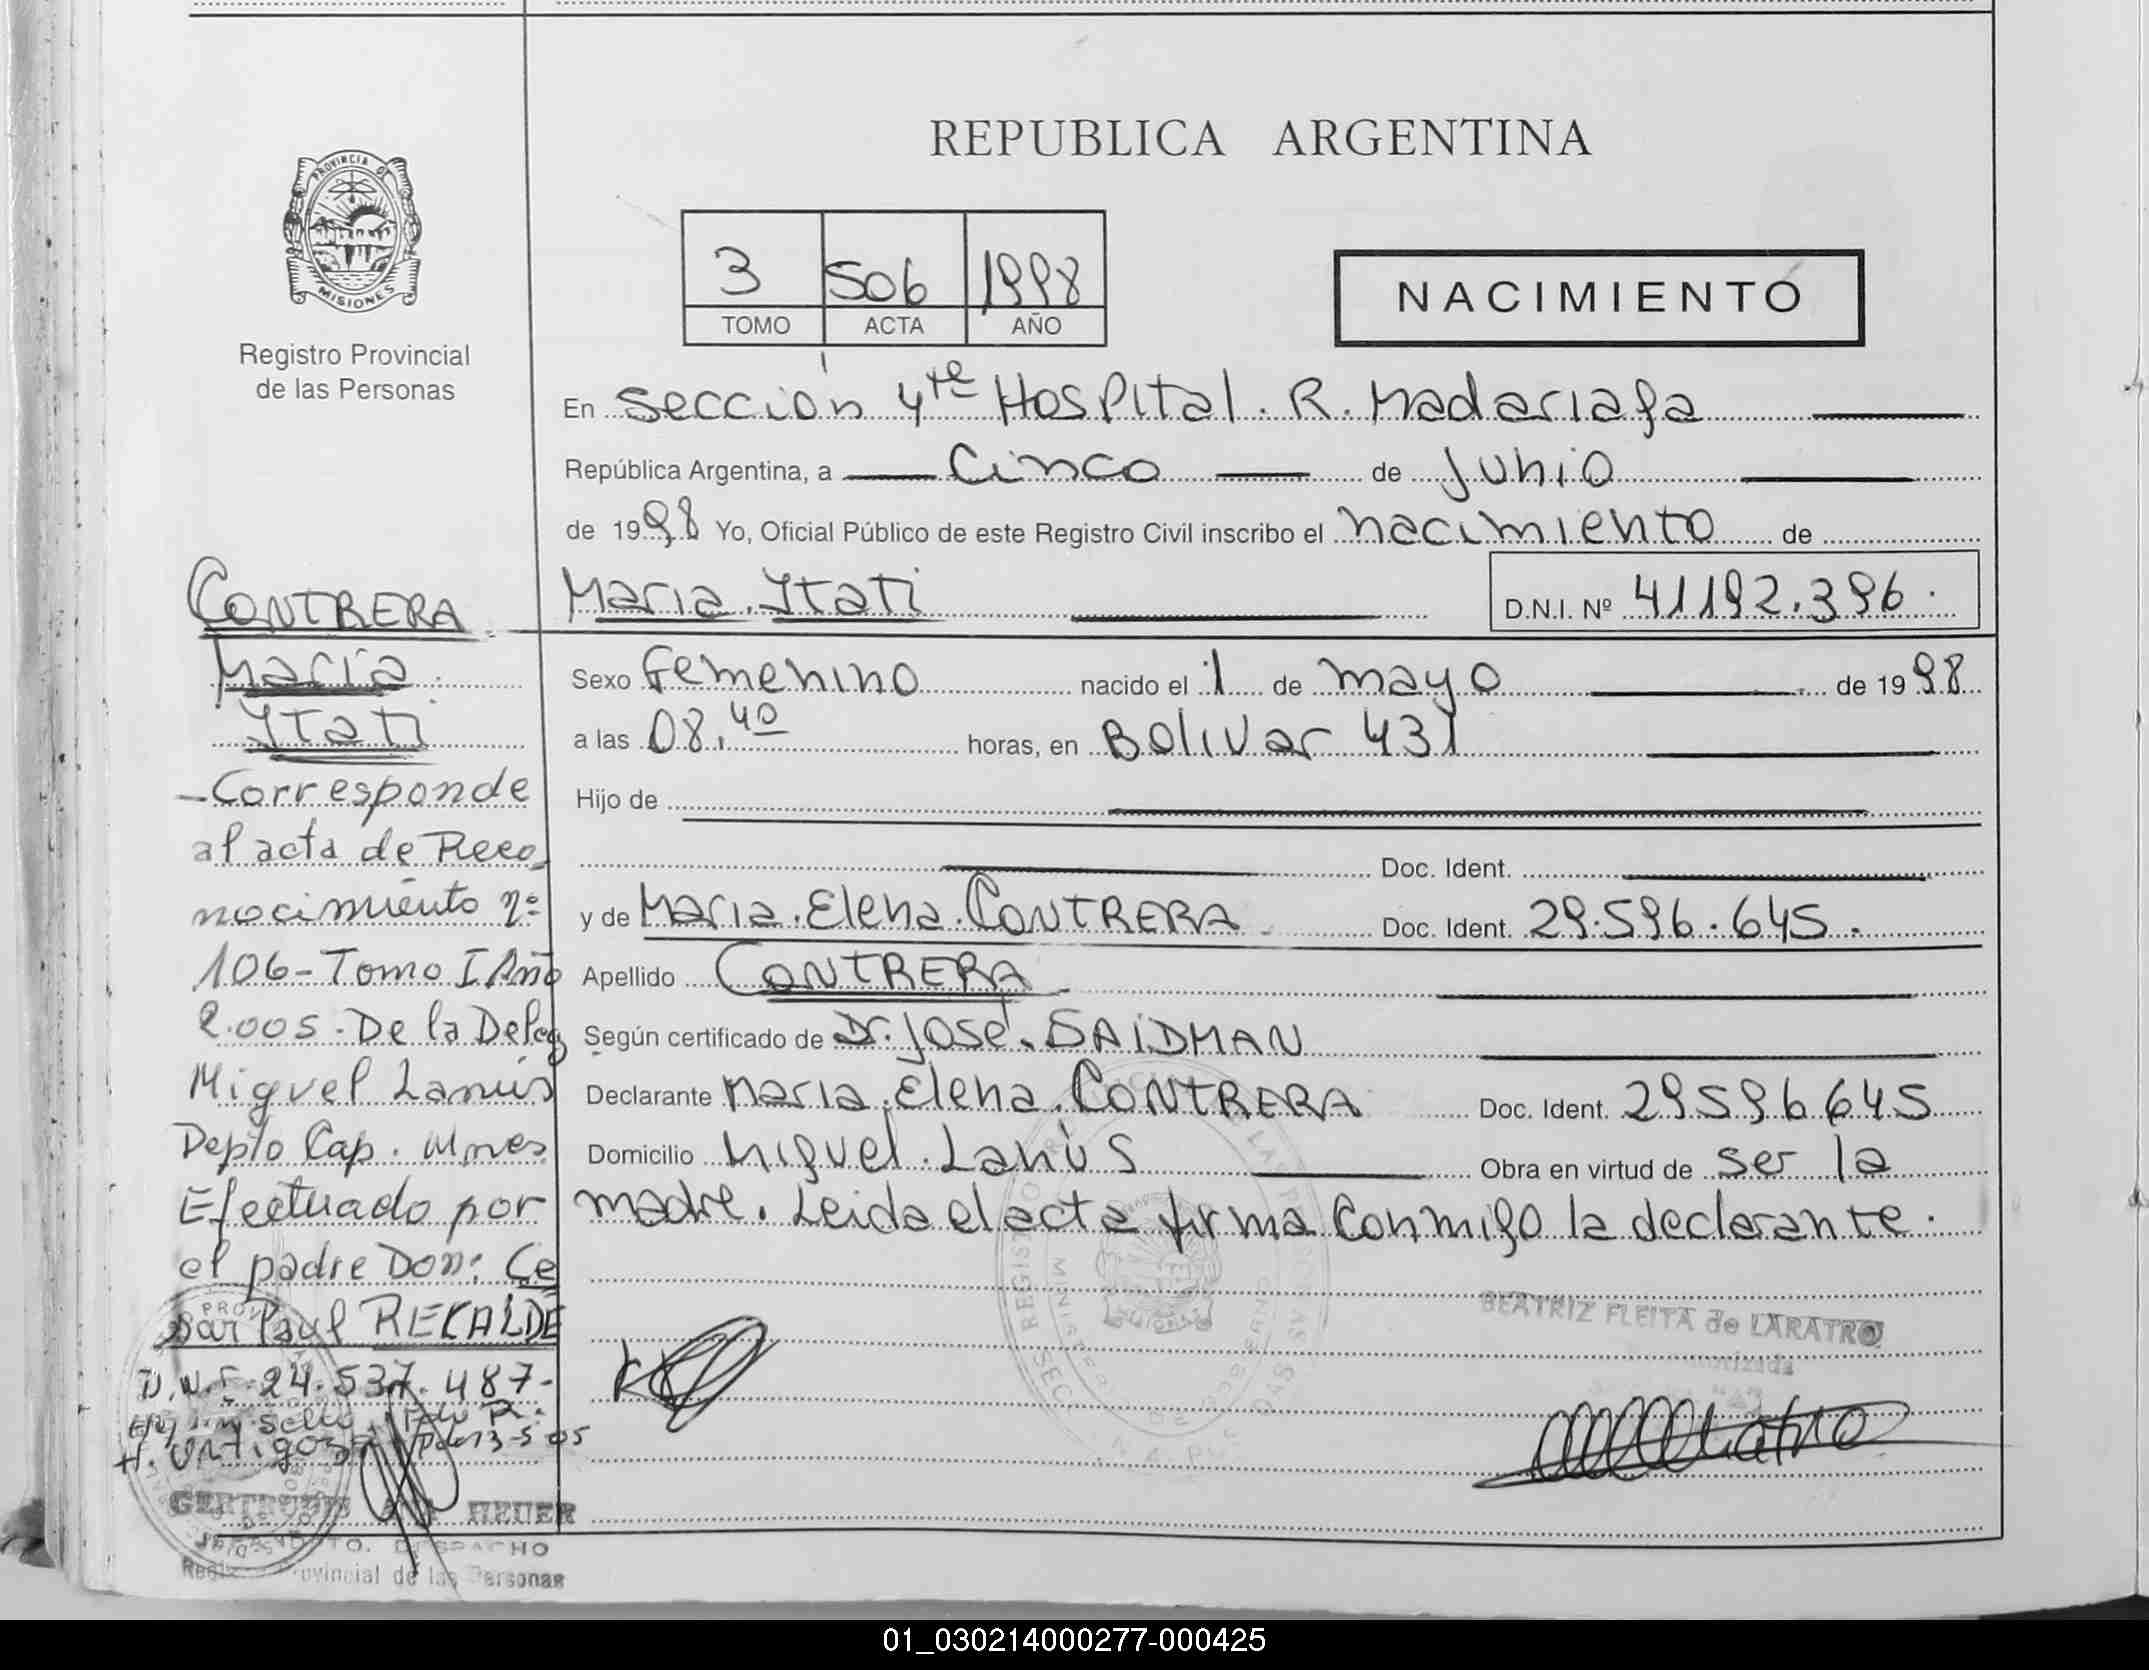 REPUBLICA ARGENTINA
PROVINCIA DE
MISIONES
Registro Provincial
de las Personas
3 506 1998
TOMO ACTA AÑO
NACIMIENTO
En sección 4ta Hospital. R. Madariaga
República Argentina, a Cinco de Junio
de 1998 Yo, Oficial Público de este Registro Civil inscribo el nacimiento de
Maria Itati D.N.I. Nº 41192.396.
Sexo Femenino nacido el 1 de mayo de 1998
a las 08.40 horas, en Bolivar 431
Hijo de
Doc. Ident.
y de Maria Elena CONTRERA Doc. Ident. 29.596.645.
Apellido CONTRERA
Según certificado de Dr. José SAIDMAN
Declarante Maria Elena CONTRERA Doc. Ident. 29596645
Domicilio Miguel Lanús Obra en virtud de ser la
madre. Leida el acta firma conmigo la declarante.
BEATRIZ FLEITA de LARATRO
CONTRERA
Maria
Itati
- Corresponde
al acta de Reco
nocimiento nº
106 - Tomo I Año
2.005 - De la Deleg
Miguel Lanús
Depto Cap. Mnes
Efectuado por
el padre Don: Ce
sar Paul RECALDE
D.N.I. 24.537.487-
HEUER
DESPACHO
Provincial de las Personas
01_030214000277-000425